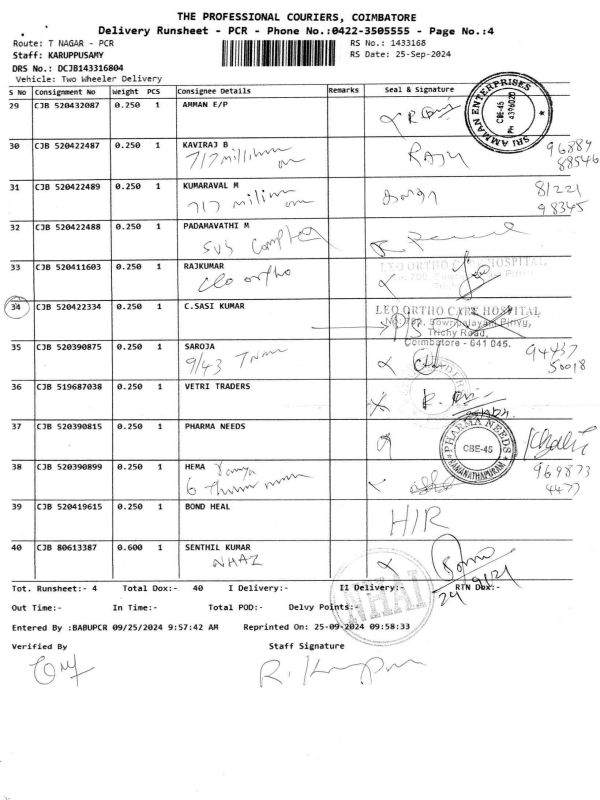 THE PROFESSIONAL COURIERS, COIMBATORE
Delivery Runsheet - PCR - Phone No.:0422-3505555 - Page No.:4
Route: T NAGAR - PCR
RS No.: 1433168
Staff: KARUPPUSAMY
RS Date: 25-Sep-2024
DRS No.: DCJB143316804
Vehicle: Two Wheeler Delivery
S No Consignment No Weight PCS Consignee Details Remarks Seal & Signature
29 CJB 520432087 0.250 1 AMMAN E/P
SRI AMMAN ENTERPRISES
CBE-45
PH 4396020
30 CJB 520422487 0.250 1 KAVIRAJ B
717 RAJU 96884
88546
31 CJB 520422489 0.250 1 KUMARAVAL M
717 81221
98345
32 CJB 520422488 0.250 1 PADAMAVATHI M
SVS
33 CJB 520411603 0.250 1 RAJKUMAR
C/o ortho
LEO ORTHO CARE HOSPITAL
34 CJB 520422334 0.250 1 C.SASI KUMAR
LEO ORTHO CARE HOSPITAL
Sowripalayam Pirivu,
Trichy Road,
Coimbatore - 641 045.
35 CJB 520390875 0.250 1 SAROJA
9/43 94437
50018
36 CJB 519687038 0.250 1 VETRI TRADERS
37 CJB 520390815 0.250 1 PHARMA NEEDS
PHARMA NEEDS
CBE-45
RAMANATHAPURAM
38 CJB 520390899 0.250 1 HEMA
6 969873
4477
39 CJB 520419615 0.250 1 BOND HEAL
H/R
40 CJB 80613387 0.600 1 SENTHIL KUMAR
NHAI
NHAI
Tot. Runsheet:- 4 Total Dox:- 40 I Delivery:- II Delivery:- RTN Dox:-
Out Time:- In Time:- Total POD:- Delvy Points:-
Entered By :BABUPCR 09/25/2024 9:57:42 AM Reprinted On: 25-09-2024 09:58:33
Verified By Staff Signature